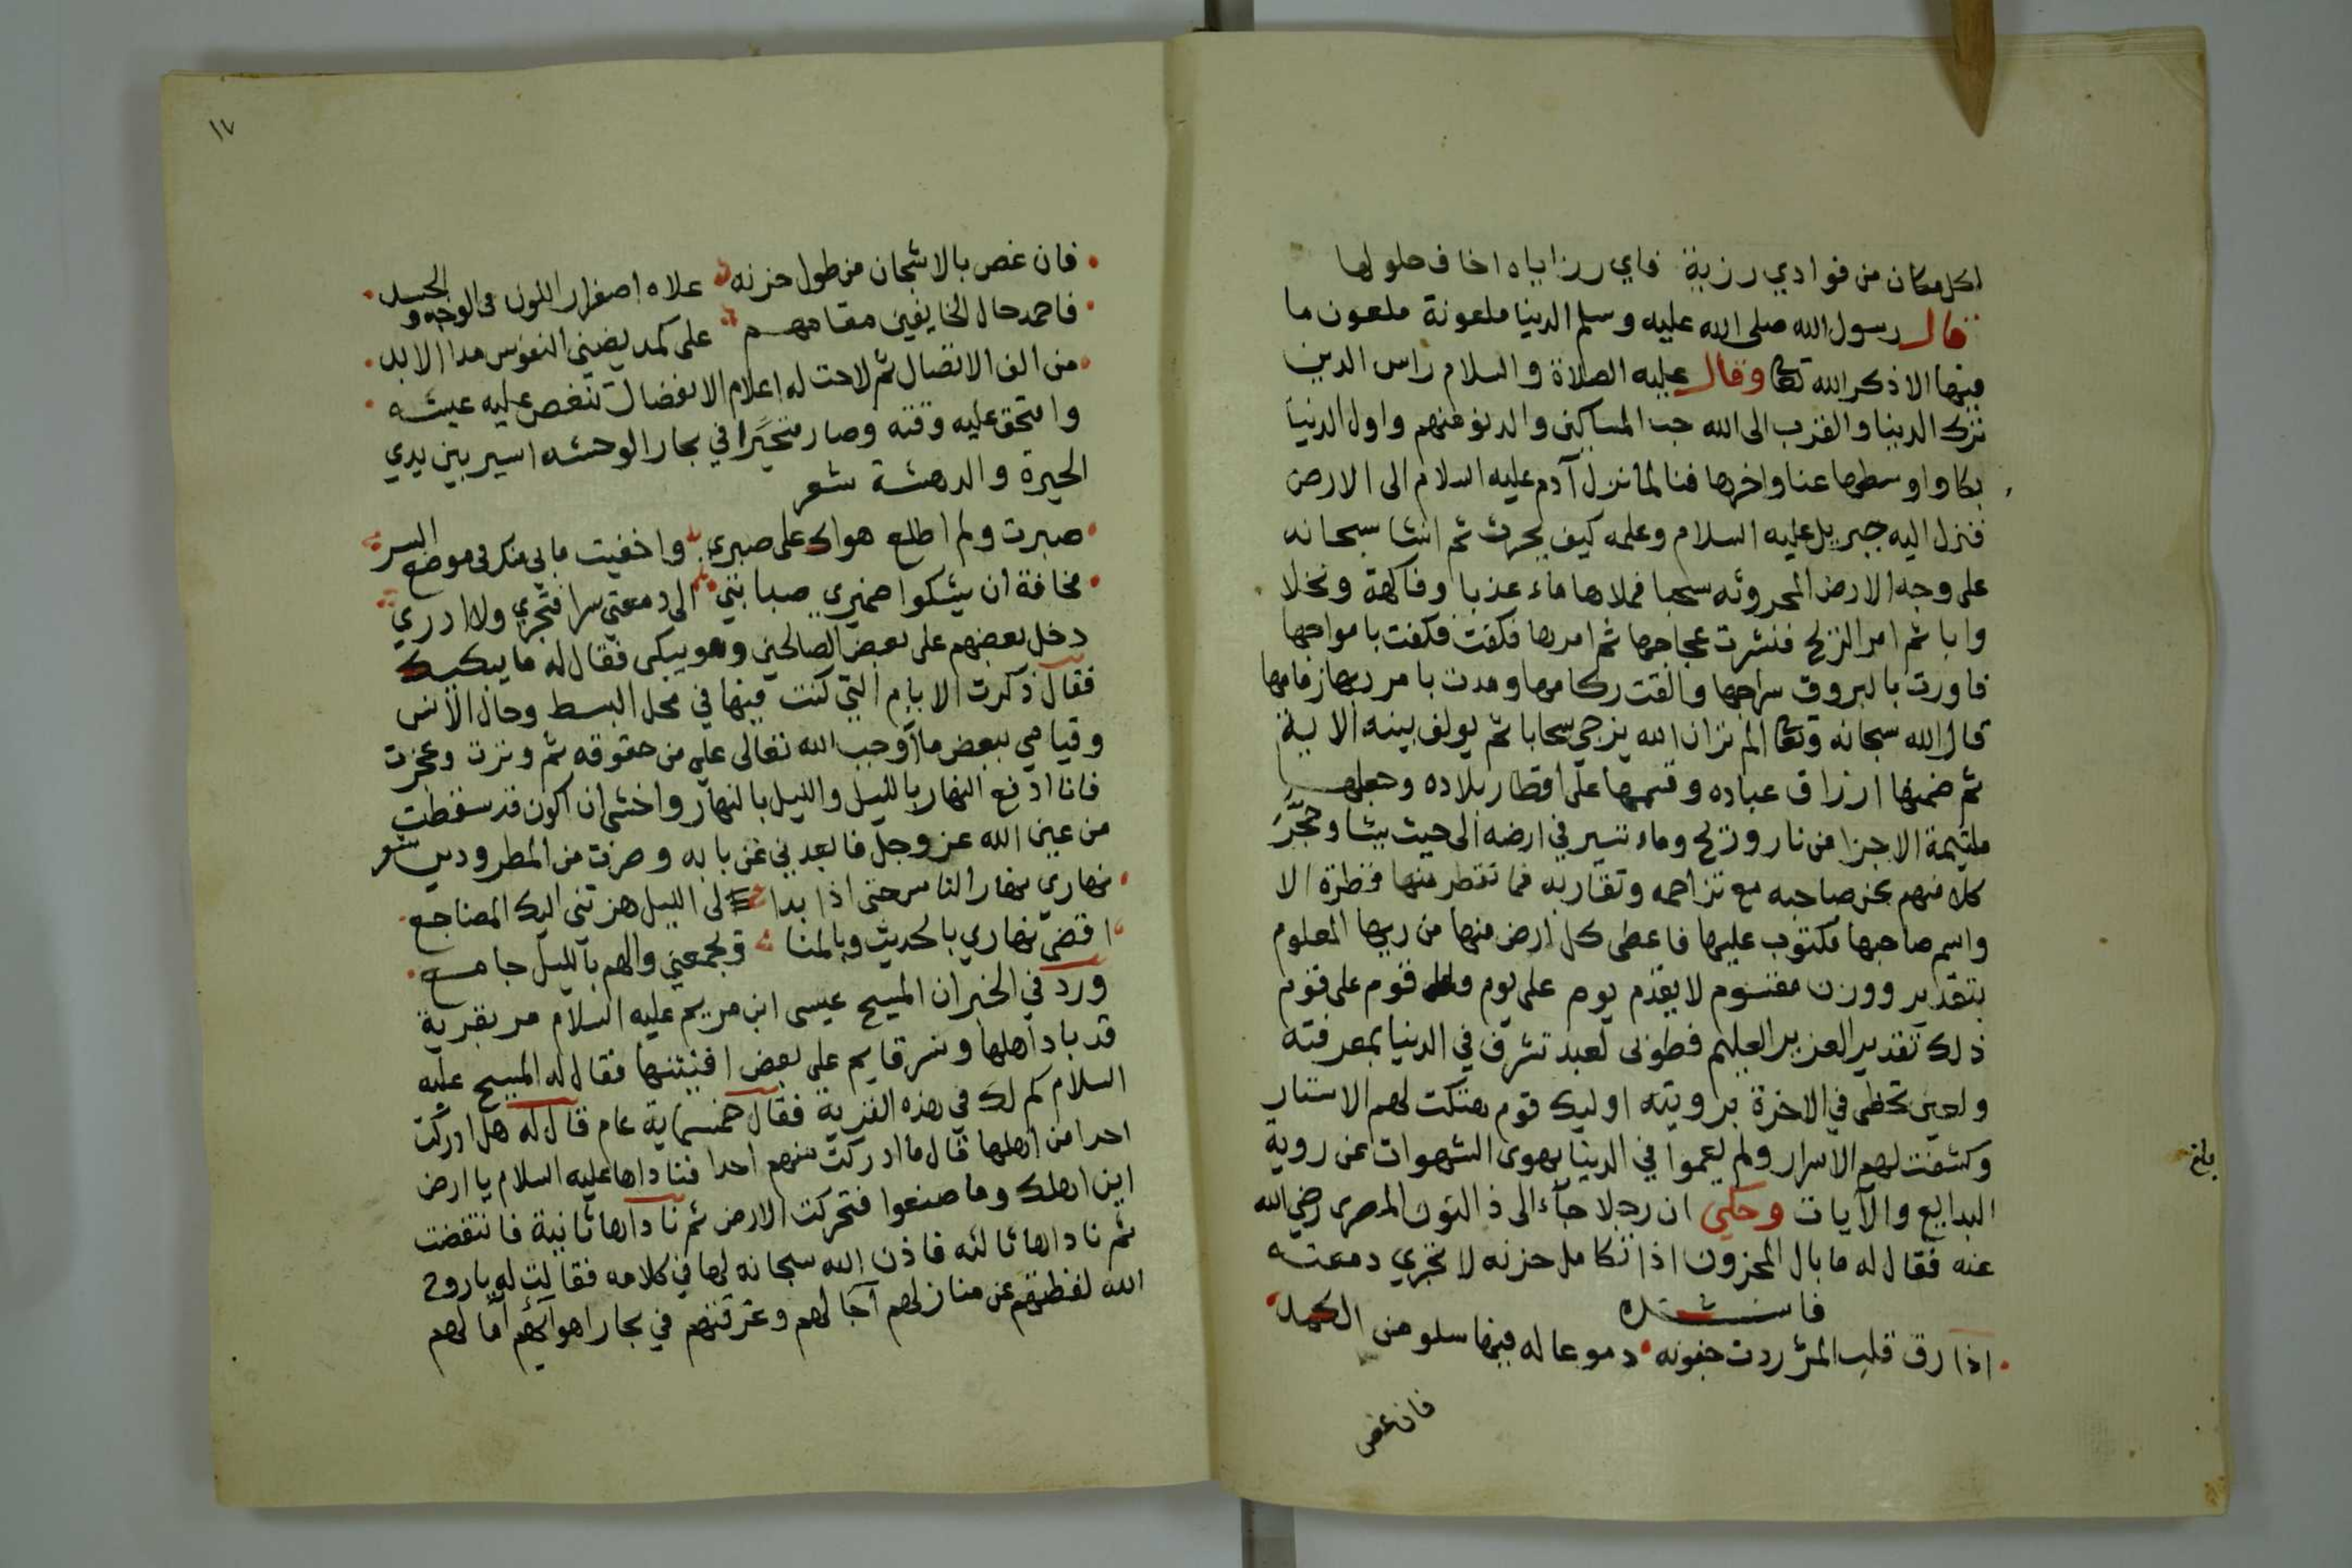 لكل مكان من فوادي رزية فاي رزاياه اخاف حلولها
قال رسول الله صلى الله عليه وسلم الدنيا ملعونة ملعون ما
فيها الا ذكر الله تعا وقال عليه الصلاة والسلام راس الدين
ترك الدنيا والقرب الى الله حب المساكين والدنو منهم واول الدنيا
بكا واوسطها عنا واخرها فنا لما نزل آدم عليه السلام الى الارض
فنزل اليه جبريل عليه السلام وعلمه كيف يحرث ثم انشا سبحانه
على وجه الارض المحروثه سحبا فملاها ماء عذبا وفاكهة ونخلا
وابا ثم امر الريح فنشرت عجاجها ثم امرها فكفت فكفت بامواجها
فاورت بالبروق سراجها والقت ركامها ومدت بامر ربها زمامها
قال الله سبحانه وتعا الم تر ان الله يزجي سحابا ثم يولف بينه الاية
ثم ضمنها ارزاق عباده وقسمها على اقطار بلاده وجعلها
ملتيمة الاجزا من نار وريح وماء تسير في ارضه الى حيث يشا وحجر
كلا منهم عن صاحبه مع تزاحمه وتقاربه فما تقطر منها قطرة الا
واسم صاحبها مكتوب عليها فاعطى كل ارض منها من ربها المعلوم
بتقدير ووزن مقسوم لا يقدم يوم على يوم ولا قوم على قوم
ذلك تقدير العزيز العليم فطوبى لعبد تشرف في الدنيا بمعرفته
ولعين تحظى في الاخرة برويته اوليك قوم هتكت لهم الاستار
وكشفت لهم الاسرار ولم يعموا في الدنيا بهوى الشهوات عن روية
البدايع والآيات وحكي ان رجلا جآء الى ذا النون المصرى رضي الله
عنه فقال له ما بال المحزون اذا تكامل حزنه لا تجري دمعته
فانشده
اذا رق قلب المر ردت جفونه دموعا له فيها سلو من الكمد
فان غص
بلغ
١٧
فان غص بالاشجان من طول حزنه علاه اصفرار اللون في الوجه والجسد
فاحمد حال الخايفين مقامهم على كمد يضني النفوس مدا الابد
من الف الاتصال ثم لاحت له اعلام الانفضال تنغص عليه عيشه
وامتحق عليه وقته وصار متحيرا في بحار الوحشه اسير بين يدي
الحيرة والدهشة شعر
صبرت ولم اطلع هواك على صبري واخفيت ما بي منك في موضع السر
مخافة ان يشكوا ضميري صبابتي الى دمعتي سرا فتجري ولا ادري
دخل بعضهم على بعض الصالحين وهو يبكى فقال له ما يبكيك
فقال ذكرت الايام التي كنت فيها في محل البسط وحال الانس
وقيامي ببعض ما اوجب الله تعالى على من حقوقه ثم وترت وعجزت
فانا ادفع النهار بالليل والليل بالنهار واخشى ان اكون قد سقطت
من عين الله عز وجل فابعدني عن بابه وصرت من المطرودين شعر
نهاري نهار الناس حتى اذا بدا لى الليل هزتنى اليك المضاجع
اقضى نهاري بالحديث وبالمنا ويجمعني والهم بالليل جامع
ورد في الخبر ان المسيح عيسى ابن مريم عليه السلام مر بقرية
قد باد اهلها ونسر قايم على بعض افنيتها فقال له المسيح عليه
السلام كم لك في هذه القرية فقال خمسماية عام قال له هل ادركت
احدا من اهلها قال ما ادركت منهم احدا فناداها عليه السلام يا ارض
اين اهلك وما صنعوا فتحركت الارض ثم ناداها ثانية فانتفضت
ثم ناداها ثالثه فاذن الله سبحانه لها في كلامه فقالت له ياروح
الله لفظتهم عن منازلهم آجالهم وغرقتهم في بحار اهوآئهم آمالهم